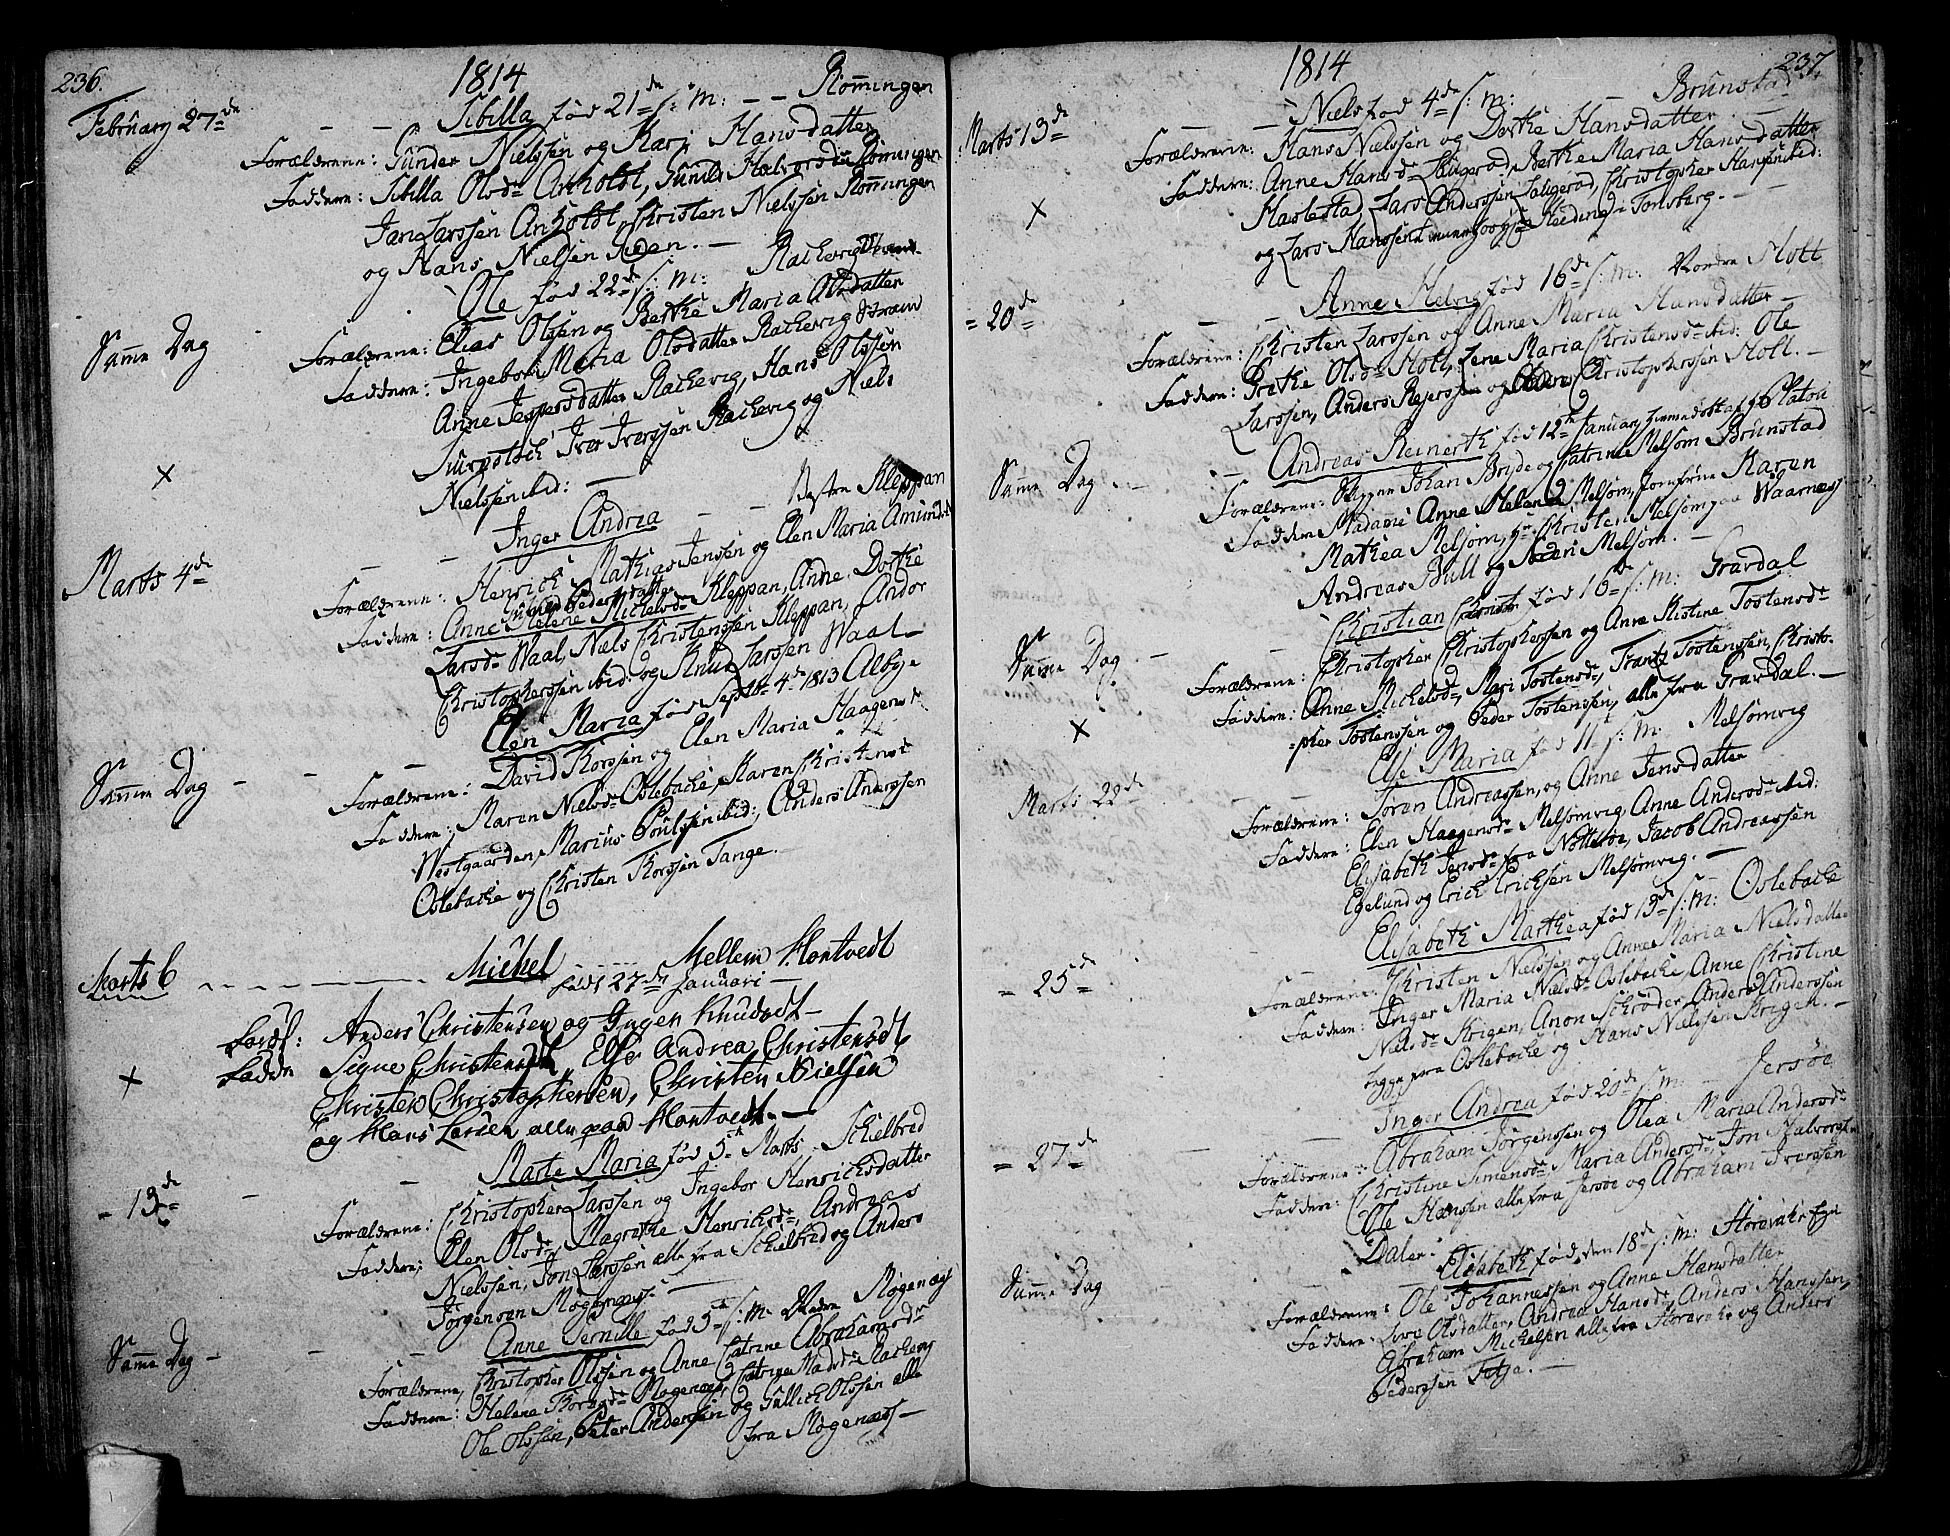 236.
1814
February 27de — — Sibilla fød 21de s: m: — — Römmingen
Forældrene: Gunder Nielssen og Kari Hansdatter
Faddere: Sibilla Olsdr Arholdt, Gunild Halvorsdr Römmingen
Jan Larssen Anholdt, Christen Nielssen Römmingen
og Hans Nielsen Reden. —
Samme Dag Ole fød 22de s: m: Rachevig Strand
Forældrene: Elias Olssen og Berthe Maria Olsdatter
Faddere: Ingebor Maria Olsdatter Rachevig Strand
Anne Jespersdatter Rachevig, Hans Olssen
Iver Iverssen Rachevig og Niels
Nielssen ibid: —
×
Marts 4de — — Inger Andrea — — Kleppan
Forældrene: Henrich Mathias Jenssen og Elen Maria Amundsd
Gunild Pedersdatter
Faddere: Anne Helene Michelsdr Kleppan, Anne Dorthe
Larsdr Waal, Niels Christenssen Kleppan, Andor
Christopherssen ibid: og Knud Larssen Waal —
Samme Dag — — — Elen Maria fød Septbr 4de 1813 Albye
Forældrene: David Thorssen og Elen Maria Haagensdr
Faddere: Maren Nielsdr Oslebache, Karen Christensdr
Westgaarden, Marius Poulssen ibid:, Anders Anderssen
Oslebache og Christen Thorssen Tange. —
Marts 6 — — — Michel — Mellem Hontvedt
født 27de Januari —
Foræl: Anders Christensen og Ingen Knudsdt —
Fadde Signe Christensdt, Else Andrea Christensdt,
Christen Christophersen, Christen Nielsen
og Hans Larsen alle paa Hontvedt. —
×
= 13de — — Marte Maria fød 5te Marts, Schielbred
Forældrene: Christopher Larssen og Ingebor Henrichsdatter
Faddere: Elen Olsdr, Magrethe Henrichsdr, Andreas
Nielssen, Jon Larssen alle fra Schielbred og Anders
Jörgensen Mögenæss. —
Samme Dag — — — Anne Pernille fød 5te s: m: Mögenæs
Forældrene, Christopher Olssen og Anne Catrine Abrahamsdr
Faddere: Helene Thorsdr Mögenæss, Catrine Madsdr Rachevig
Ole Olssen, Peter Anderssen og Gullich Olssen alle
fra Mögenæss —
1814
237.
Marts 13de — — Niels fød 4de s: m: — Brunstad
Forældrene: Hans Nielssen og Dorthe Hansdatter
Faddere: Anne Hansdr Saugerød, Berthe Maria Hansdatter
Haslestad, Lars Anderssen Saugerød, Christopher Hanssen ibid:
og Lars Hanssen Tonsberg. —
×
= 20de — — Anne Helvig fød 16de s: m: Nordre Stoll
Forældrene: Christen Larssen og Anne Maria Hansdatter —
Faddere: Berthe Olsdr Stoll, Lene Maria Christensdr ibid: Ole
Larssen, Anders Rejerssen og Christopherssen Stoll. —
Samme Dag — — Andreas Reinerth fød 12te January
Forældrene: Johan Bryde og Catrine Melsom Brunstad
Faddere Madame Anne Helene Melsom, Jomfrue Karen
Mathea Melsom, Hr Christen Melsom paa Waarnæs
Andreas Bull og Melsom. —
Samme Dag — — Christian fød 16de s: m: Gravdal
Forældrene: Christopher Christopherssen og Anne Kistine Tostensdr
Faddere: Anne Michelsdr, Mari Tostensdr, Frantz Tostenssen, Christo-
=pher Tostenssen og Peder Tostenssen, alle fra Gravdal. —
×
Marts 22de — Else Maria fød 11te s: m: Melsomvig
Forældrene: Søren Andreassen, og Anne Jensdatter
Faddere: Elen Haagensdr Melsomvig, Anne Andersdr ibid:
Elisabeth Jensdr fra Nötteröe, Jacob Andreassen
Egelund og Erich Erichsen Melsomvig. —
= 25de Elisabeth Marthea fød 13de s: m: Oslebache
Forældrene: Christen Nielssen og Anne Maria Nielsdatter
Faddere: Inger Maria Nielsdr Oslebache, Anne Christine
Nielsdr Krigen, Anon Schröder, Anders Anderssen
begge fra Oslebache og Hans Nielssen Krigen. —
= 27de — Inger Andrea fød 20de s: m: — Jersöe
Forældrene: Abraham Jörgenssen og Olea Maria Andersdr
Faddere: Christine Simensdr Maria Andersdr, Jon Halvorssen
Ole Hanssen alle fra Jersöe og Abraham Iverssen
Dalen.
Samme Dag Elisabeth fød den 18de s: m: Horavahr
Forældrene: Ole Johannessen og Anne Hansdatter
Faddere: Lova Olsdatter, Andrea Hansdr Anders Hanssen,
Abraham Michelsen alle fra Horavahr og Anders
Pederssen Fetja. —